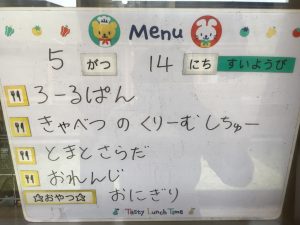 Menu
5 がつ 14 にち すいようび
ろーるぱん
きゃべつ の くりーむ しちゅー
とまと さらだ
おれんじ
☆おやつ☆ おにぎり
Tasty Lunch Time